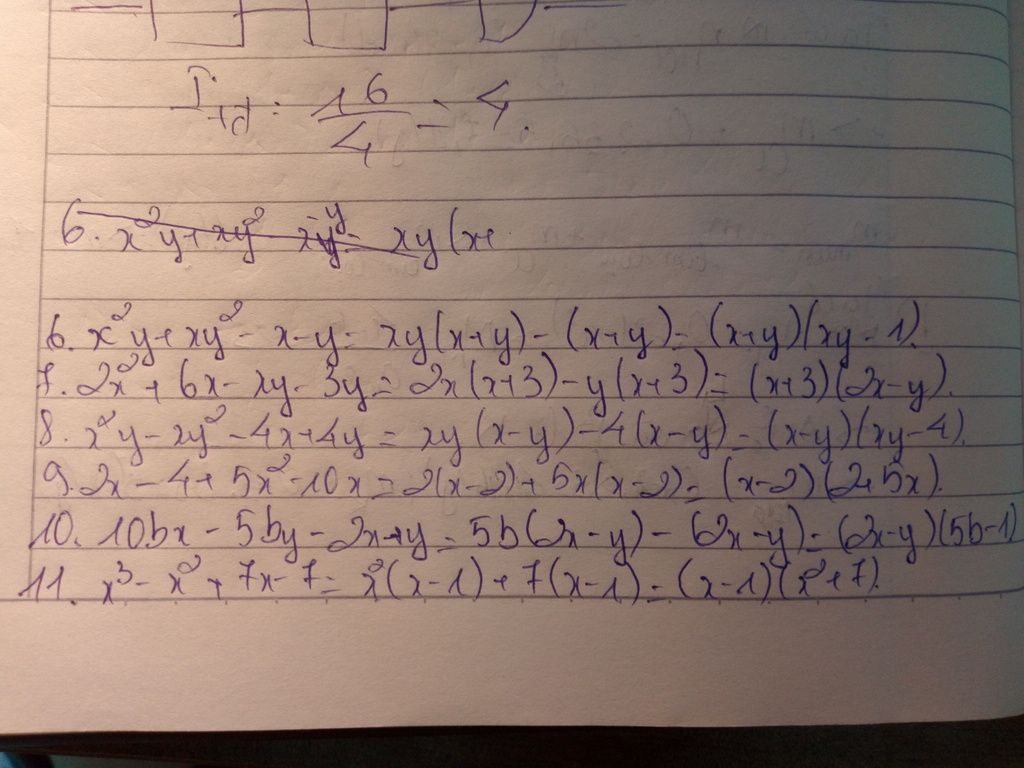 I tđ = 16/4 = 4.
6. x²y + xy² - x - y = xy(x+
6. x²y + xy² - x - y = xy(x+y) - (x+y) = (x+y)(xy - 1).
7. 2x² + 6x - xy - 3y = 2x(x+3) - y(x+3) = (x+3)(2x-y).
8. x²y - xy² - 4x + 4y = xy(x-y) - 4(x-y) = (x-y)(xy-4).
9. 2x - 4 + 5x² - 10x = 2(x-2) + 5x(x-2) = (x-2)(2+5x).
10. 10bx - 5by - 2x + y = 5b(2x-y) - (2x-y) = (2x-y)(5b-1)
11. x³ - x² + 7x - 7 = x²(x-1) + 7(x-1) = (x-1)(x²+7).